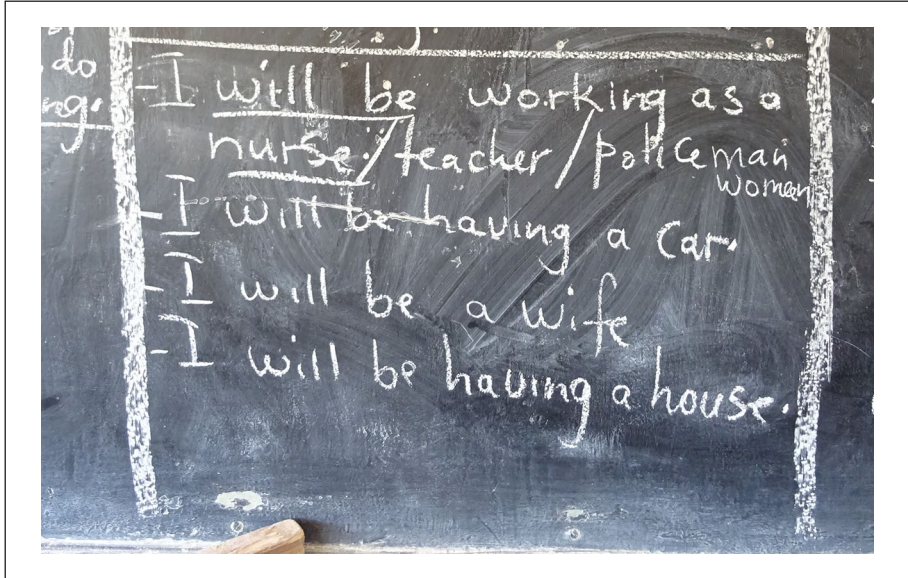 do
ng.
- I will be working as a
nurse./teacher/policeman
women
- I will be having a car.
- I will be a wife
- I will be having a house.